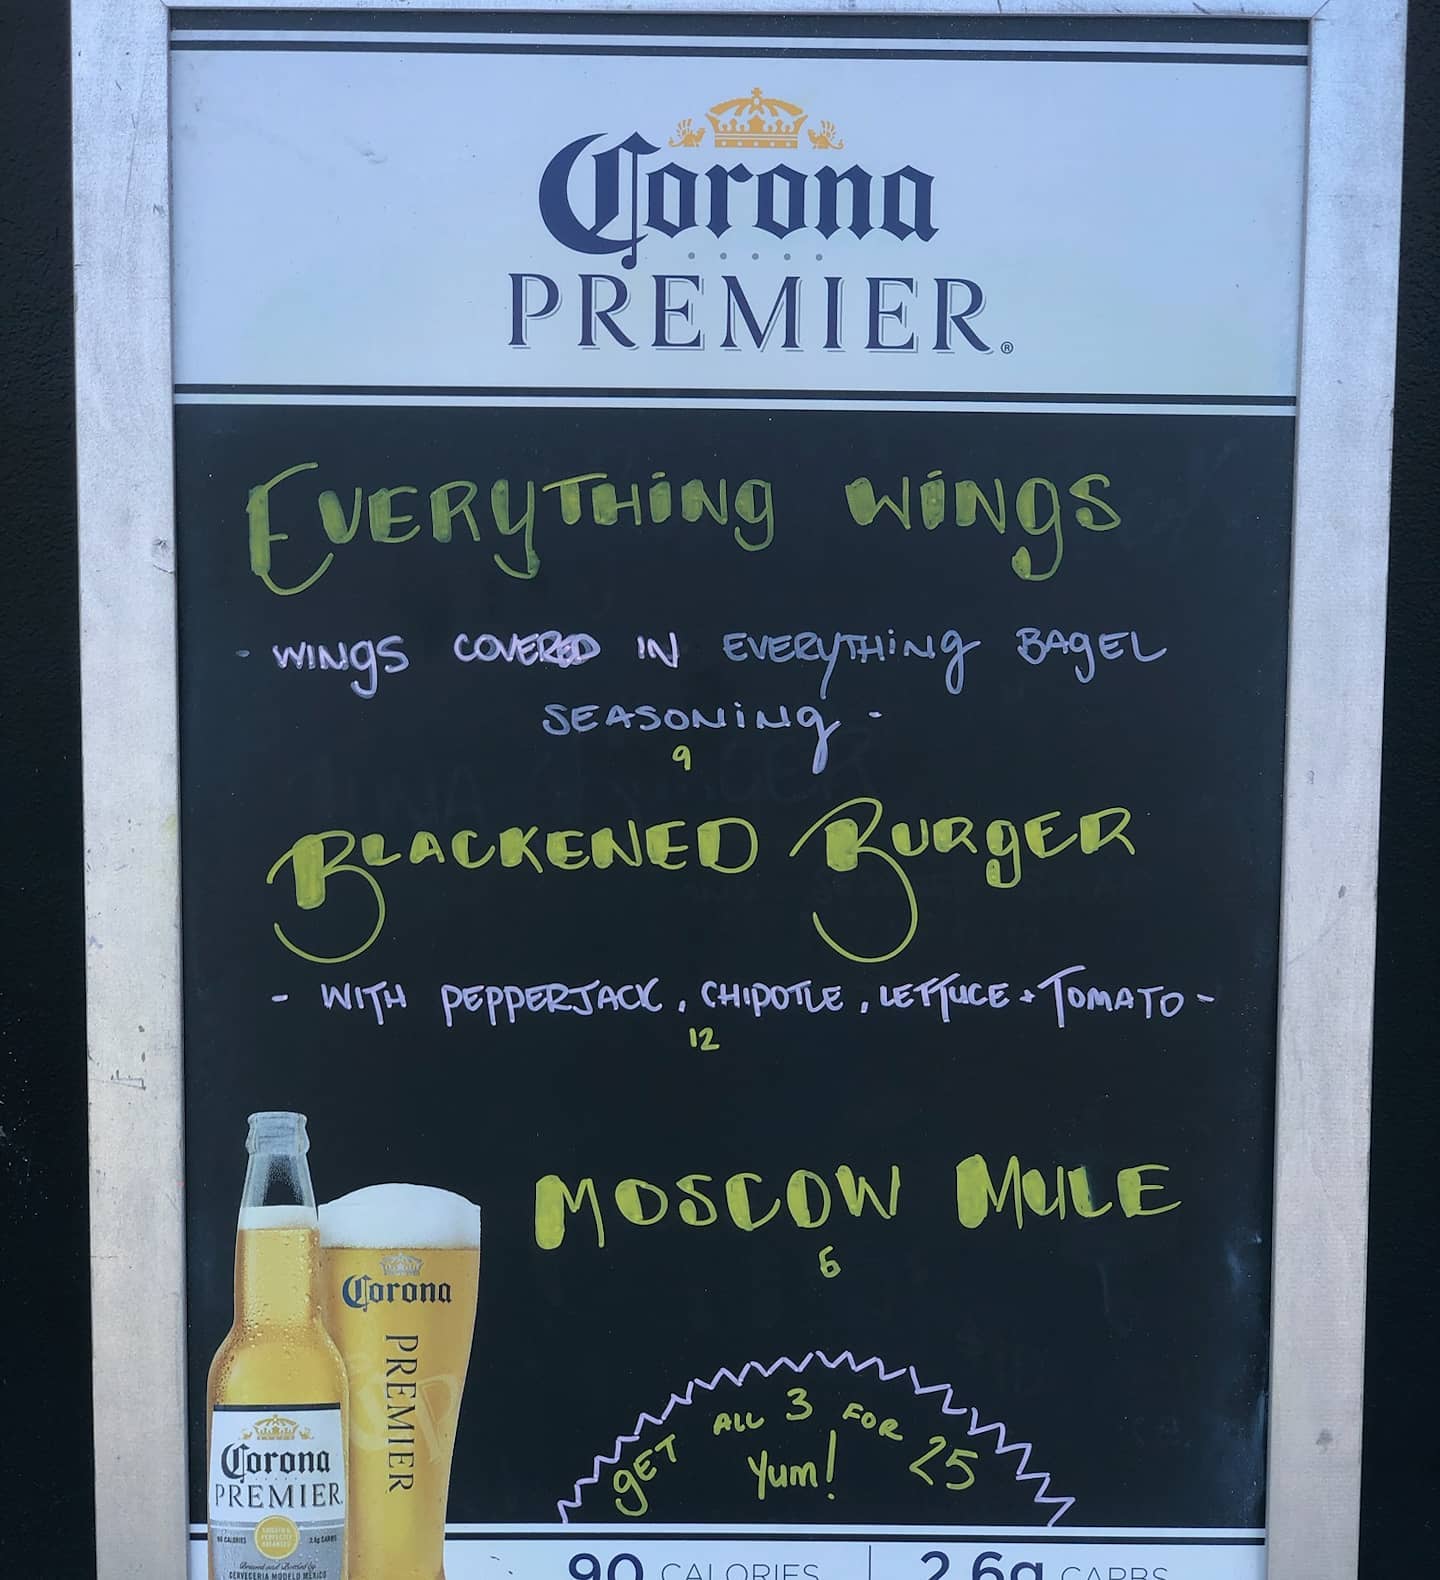 Corona
PREMIER®
EVERYTHiNg WiNgS
- WINgS COVERED IN EVERYTHiNg BAgEL
SEASONiNg -
9
BLACKENED BURgER
- WITH PEPPERJACK, CHIPOTLE, LETTUCE + TOMATO -
12
MOSCOW MULE
6
gET ALL 3 FOR 25
Yum!
Corona
PREMIER
Corona
PREMIER
90 CALORIES
2.6g CARBS
CERVECERIA MODELO MEXICO
90 CALORIES | 2.6g CARBS